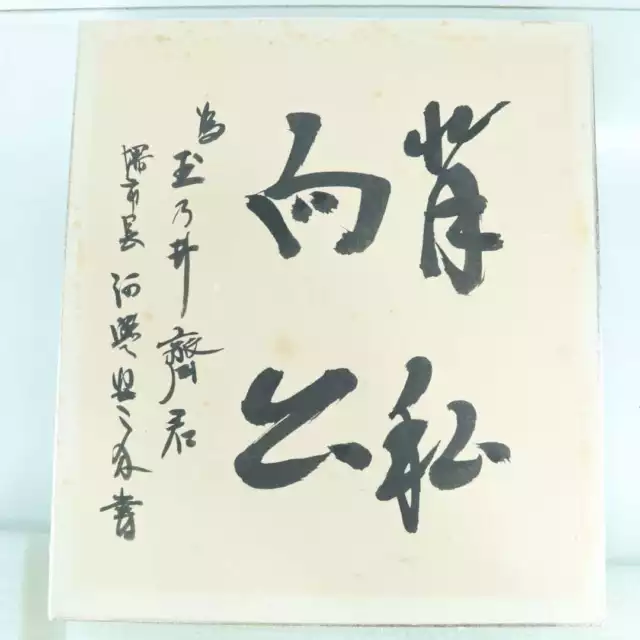 背私
向公
為玉乃井齊君
堺市長河盛安之介書